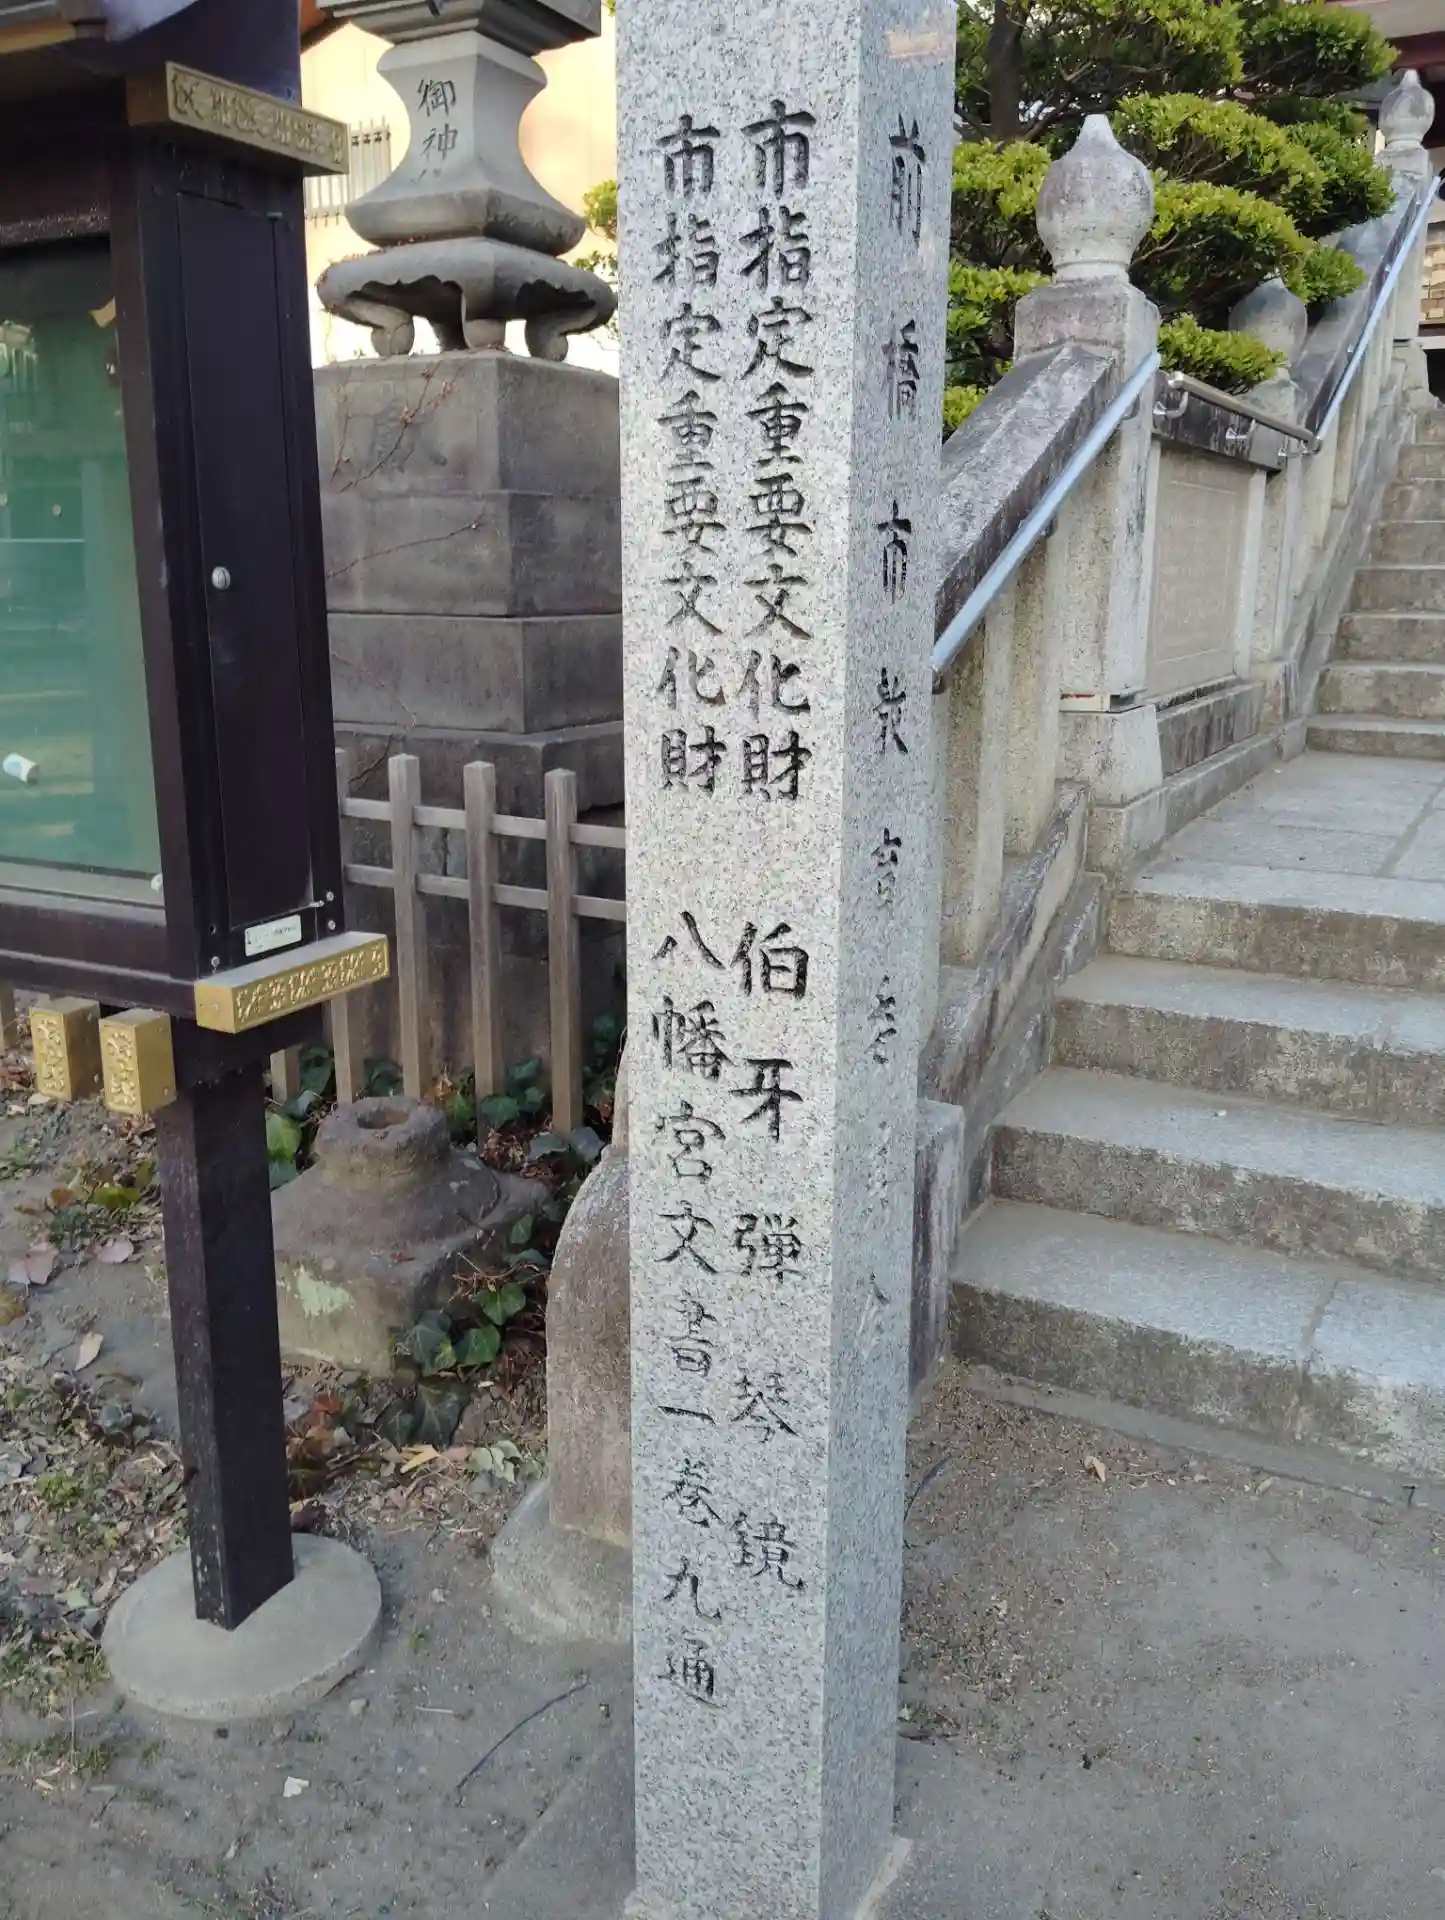 市指定重要文化財 伯牙弾琴鏡
市指定重要文化財 八幡宮文書一巻九通
前橋市教育委員会
御神